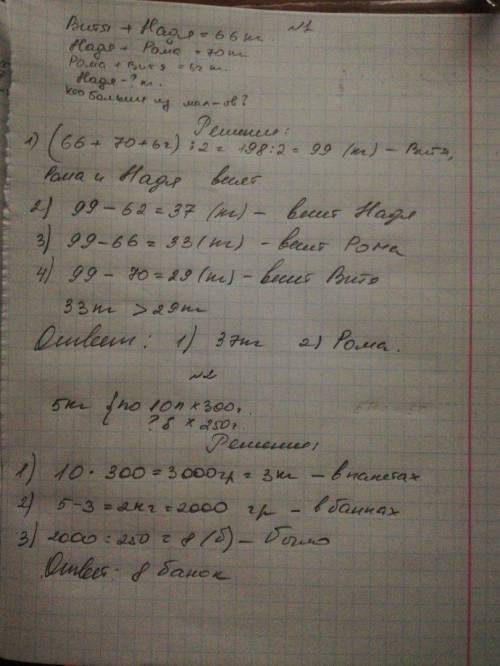 №1
Витя + Надя = 66 кг.
Надя + Рома = 70 кг
Рома + Витя = 62 кг.
Надя - ? кг.
Кто больше из мал-ов?
Решение:
1) (66 + 70 + 62) : 2 = 198 : 2 = 99 (кг) - Витя,
Рома и Надя весят
2) 99 - 62 = 37 (кг) - весит Надя
3) 99 - 66 = 33 (кг) - весит Рома
4) 99 - 70 = 29 (кг) - весит Витя
33кг > 29кг
Ответ: 1) 37кг 2) Рома.
№2
5кг { по 10п × 300г.
? б × 250г.
Решение:
1) 10 · 300 = 3000гр = 3кг - в пакетах
2) 5 - 3 = 2кг = 2000 гр - в банках
3) 2000 : 250 = 8 (б) - было
Ответ: 8 банок